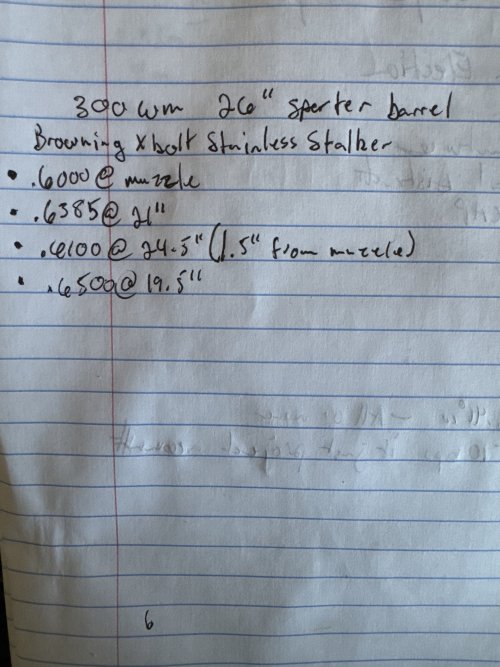 300 wm 26" sporter barrel
Browning Xbolt Stainless Stalker
• .6000 @ muzzle
• .6385 @ 21"
• .6100 @ 24.5" (1.5" from muzzle)
• .6500 @ 19.5"
6